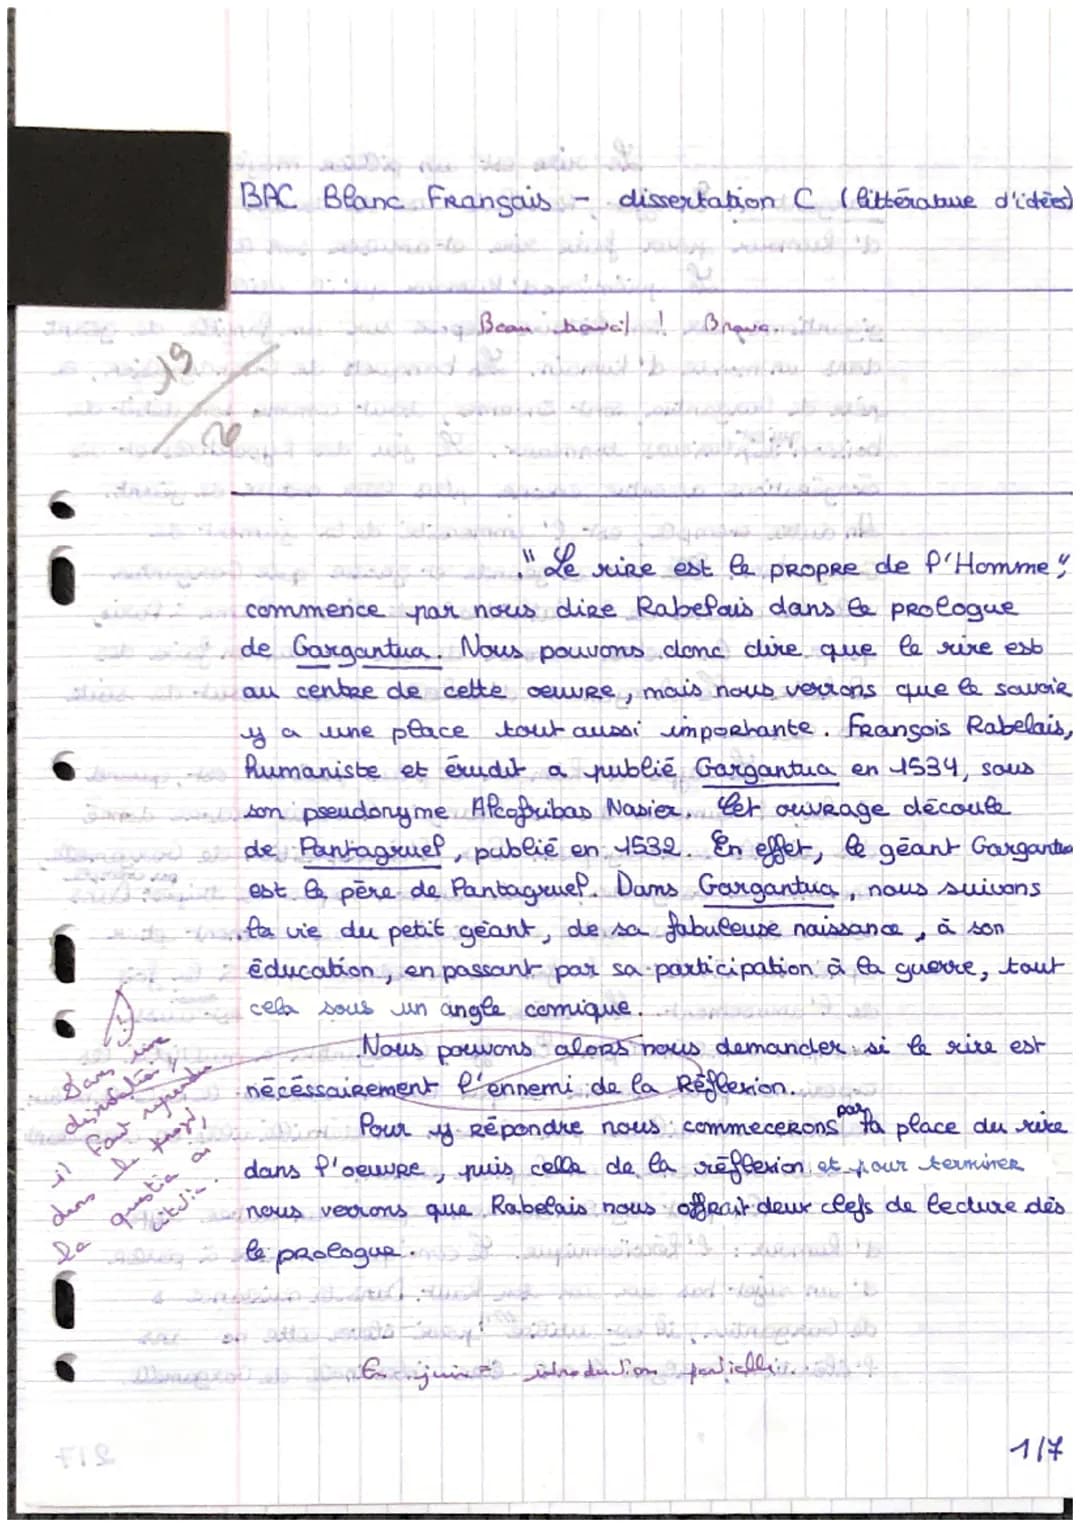 BAC Blanc Français - dissertation C (littérature d'idées)
Beau travail ! Bravo.
19
20
"Le rire est le propre de l'Homme",
commence par nous dire Rabelais dans le prologue
de Gargantua. Nous pouvons donc dire que le rire est
au centre de cette oeuvre, mais nous verrons que le savoir
y a une place tout aussi importante. François Rabelais,
humaniste et érudit a publié Gargantua en 1534, sous
son pseudonyme Alcofribas Nasier. Cet ouvrage découle
de Pantagruel, publié en 1532. En effet, le géant Gargantua
est le père de Pantagruel. Dans Gargantua, nous suivons
la vie du petit géant, de sa fabuleuse naissance, à son
éducation, en passant par sa participation à la guerre, tout
cela sous un angle comique.
Nous pouvons alors nous demander si le rire est
nécéssairement l'ennemi de la Réflexion.
Pour y Répondre nous commecerons par la place du rire
dans l'oeuvre, puis celle de la réflexion et pour terminer
nous verrons que Rabelais nous offrait deux clefs de lecture dès
le prologue.
⚠ Dans une
dissertation,
il faut reprendre
dans le projet,
la question ou
citation.
En juin = introduction partielle...
1/7